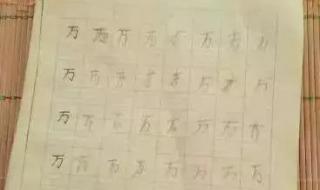 万 万 万 万 万 万 万 万
万 万 万 万 万 万 万 万
万 万 万 万 万 万 万 万
万 万 万 万 万 万 万 万